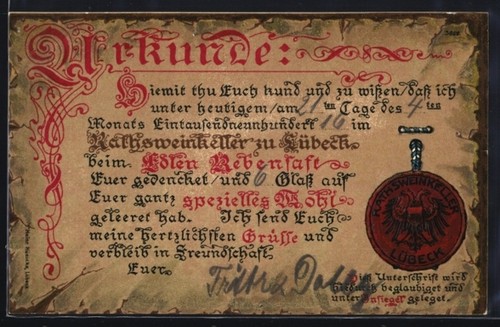 Urkunde:
Hiemit thu Euch kund und zu wißen/daß ich
unter heutigem/am 21 ten Tage des 4 ten
Monats Eintausendneunhundert 16 im
Rathsweinkeller zu Lübeck
beim Edlen Rebensaft
Euer gedencket/und 6 Glaß auf
Euer gantz spezielles Wohl
geleeret hab. Ich send Euch
meine hertzlichsten Grüße und
verbleib in Freundschaft
Euer
RATHSWEINKELLER
LÜBECK
Dies Unterschrift wird
hierdurch beglaubiget und
unter Insiegel geleget.